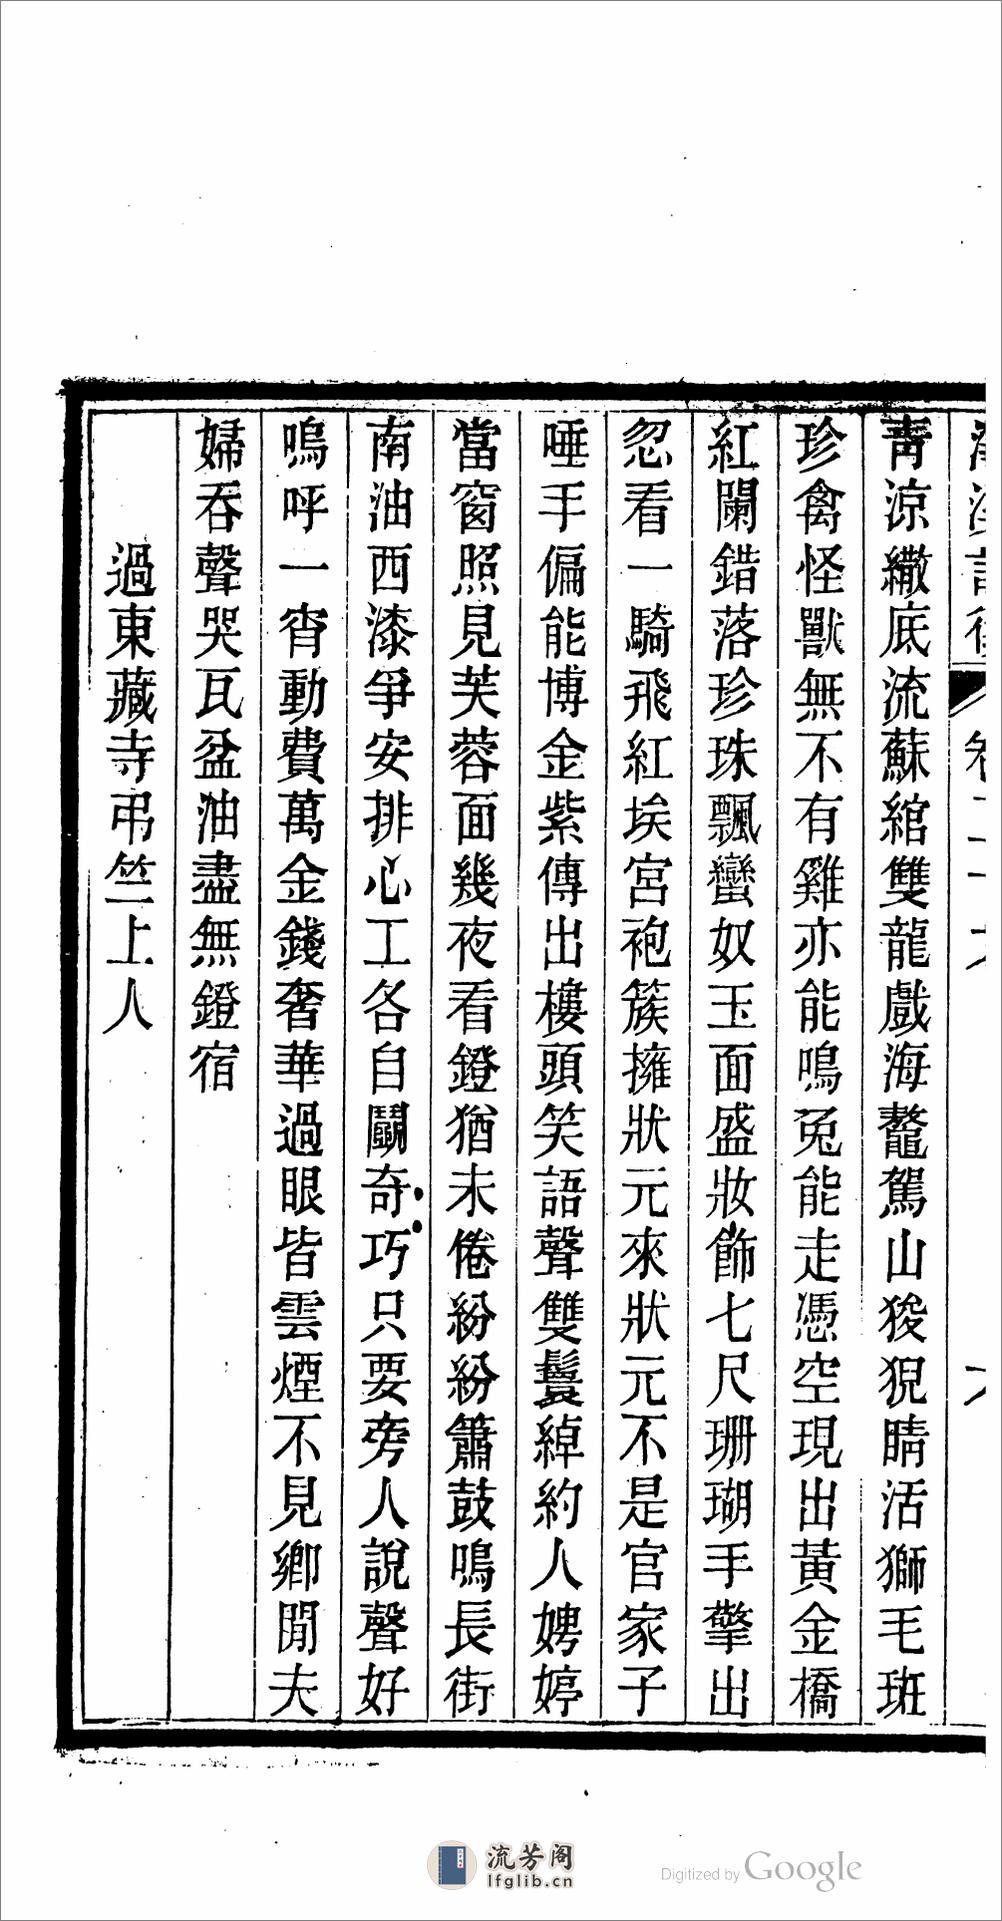 青涼繖底流蘇綰雙龍戲海鼇駕山狻猊睛活獅毛斑
珍禽怪獸無不有雞亦能鳴兎能走憑空現出黃金橋
紅闌錯落珍珠飄蠻奴玉面盛妝飾七尺珊瑚手擎出
忽看一騎飛紅埃宮袍簇擁狀元來狀元不是官家子
唾手偏能博金紫傳出樓頭笑語聲雙鬟綽約人娉婷
當窗照見芙蓉面幾夜看鐙猶未倦紛紛簫鼓鳴長街
南油西漆爭安排心工各自鬬奇巧只要旁人說聲好
嗚呼一宵動費萬金錢奢華過眼皆雲煙不見鄉閒夫
婦吞聲哭瓦盆油盡無鐙宿
過東藏寺弔竺上人
流芳阁
lfglib.cn
Digitized by Google